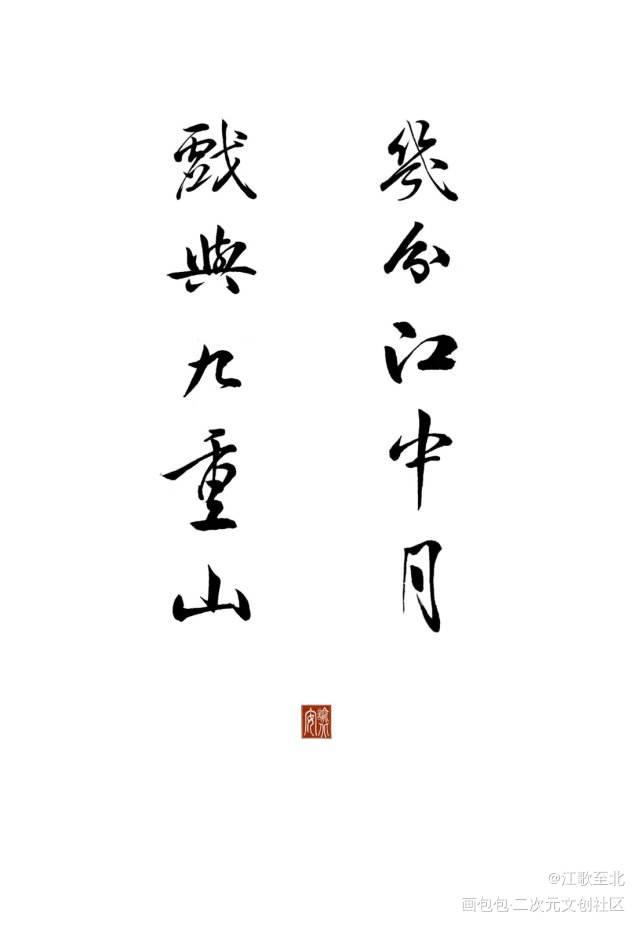 幾分江中月
戲與九重山
@江歌至北
画包包·二次元文创社区